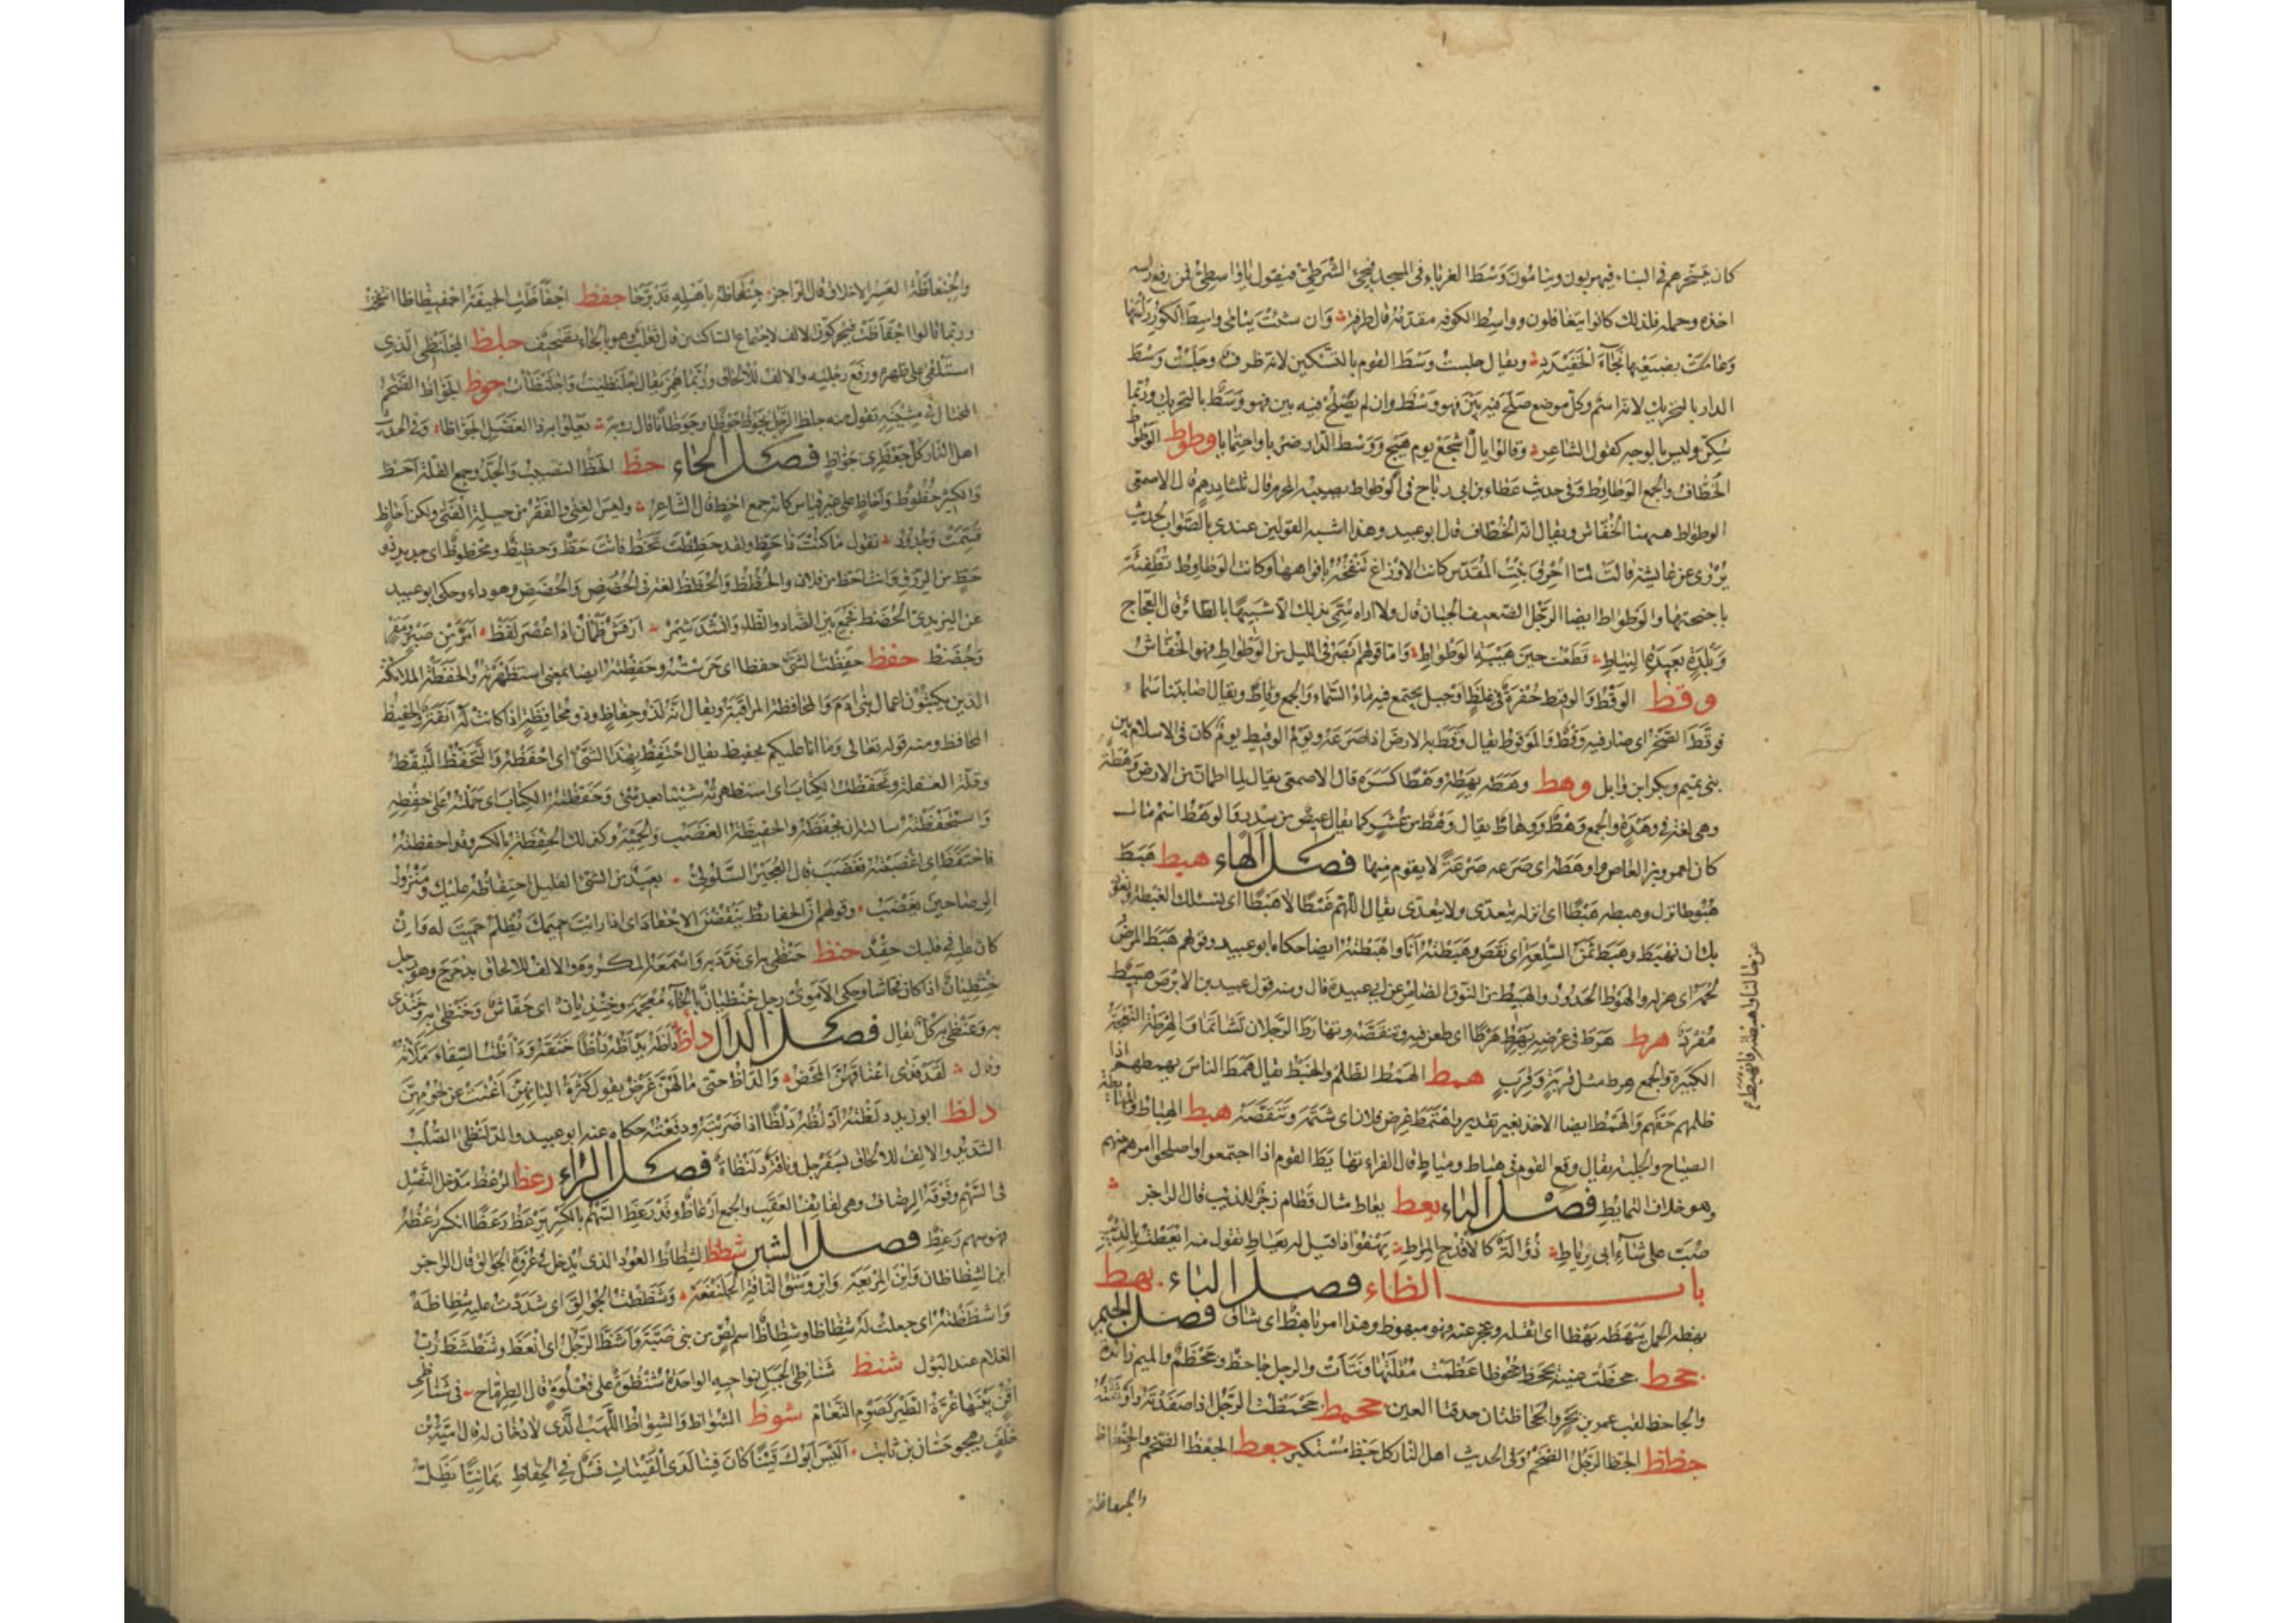 كان يتسخرهم في البناء فيهربون وينامون وَسْطَ الغرباء في المسجد فيجيء الشرطيّ فيقول يا واسطيّ فمن رفع رأسه
اخذه وحمله فلذلك كانوا يتغافلون وواسط الكوفه مقدّمه قال طرفة وان شئت يسامى واسط الكور راسها
وعامت بضبعيها نجاء الخفيدد ويقال جلست وسْط القوم بالتسكين لانه ظرف وجلست وسَط
الدار بالتحريك لانه اسم وكل موضع صلح فيه بين فهو وسْط وان لم يصلح فيه بين فهو وسَط بالتحريك وربما
سكّن وليس بالوجه كقول الشاعر وقالوا يال اشجع يوم هيج ووسط الدار ضربا واحتمايا وطوط الوَطواط
الخطّاف والجمع الوطاوط وفي حديث عطاء بن ابي رباح في الوطواط يصيبه المحرم قال ثلثا درهم قال الاصمعي
الوطواط ههنا الخفّاش ويقال انه الخطّاف قال ابو عبيد وهذا اشبه القولين عندي بالصواب لحديث
يروى عن عايشة قالت لما احرق بيت المقدس كانت الاوزاغ تنفخه بافواهها وكانت الوطاوط تطفئه
باجنحتها والوطواط ايضا الرجل الضعيف الجبان قال ولا اراه سمّي بذلك الا تشبيها بالطائر قال العجاج
وبلدة بعيدة النياط قطعت حين هيبة الوطواط واما قولهم ابصر في الليل من الوطواط فهو الخفّاش
وقط الوقط والوقيط حفرة في غلظ او جبل يجتمع فيه ماء السماء والجمع وقاط ويقال اصابتنا سماء
فوقط الصخر اى صار فيه وقط والموقوط يقال وقط به الارض اذا صرعه ويوم الوقيط يوم كان في الاسلام بين
بنى تميم وبكر ابن وايل وهط وهطه يهطه وهطا كسره قال الاصمعي يقال لما اطمان من الارض وهطة
وهي لغة في وهدة والجمع وهط ووهاط يقال وهط من عشر كما يقال عيص من سدر والوهط اسم مال
كان لعمرو بن العاص واوهطه اى صرعه صرعة لا يقوم منها فصل الهاء هبط هبط
هبوطا نزل وهبطه هبطا اى انزله يتعدى ولا يتعدى يقال اللهم غبطا لا هبطا اى نسئلك الغبطة ونعوذ
بك ان نهبط وهبط ثمن السلعة اى نقص وهبطته انا واهبطته ايضا حكاه ابو عبيد وقولهم هبط المرض
لحمه اى هزله والهبوط الحدور والهبيط من النوق الضامر عن ابي عبيدة قال ومنه قول عبيد بن الابرص هبيط
مفرد هرط هرط في عرضه يهرط هرطا اى طعن فيه وتنقصه وتهارط الرجلان تشاتما والهرطة النعجة
الكبيرة والجمع هرط مثل قربة وقرب همط الهمط الظلم والخبط يقال همط الناس يهمطهم اذا
ظلمهم حقهم والهمط ايضا الاخذ بغير تقدير واهتمط عرض فلان اى شتمه وتنقصه هيط الهياط والمهايطة
الصياح والجلبة يقال وقع القوم في هياط ومياط قال الفراء تهايط القوم اذا اجتمعوا واصلحوا امرهم بينهم
وهو خلاف التمايط فصل الياء يعط يعاط مثال قطام زجر للذئب قال الراجز
صبّ على شاء ابي رياط ذؤالة كالاقدح المراط يهفو اذا قيل له يعاط تقول منه ايعطت بالذئب
باب الظاء فصل الباء بهظ
بهظه الحمل يبهظه بهظا اى اثقله وعجز عنه فهو مبهوظ وهذا امر باهظ اى شاق فصل الجيم
جحظ جحظت عينه تجحظ جحوظا عظمت مقلتها ونتأت والرجل جاحظ وجحظم والميم زائدة
والجاحظ لقب عمرو بن بحر والجحاظتان حدقتا العين جحمظ جحمظت الرجل اذا صفدته واوثقته
جظظ الجظ الرجل الضخم وفي الحديث اهل النار كل جظ مستكبر جعظ الجعظ الضخم والجنعاظ
والجنعاظة
عن خالنا واهبطته فانهبط
والجنعاظة العسر الاخلاق قال الراجز جنعاظة باهله قد برّحا جفظ اجفاظت الجيفة اجفيظاظا انتفخت
وربما قالوا اجفأظت فيحركون الالف لاجتماع الساكنين قال ثعلب وهو بالحاء تصحيف جلظ المجلنظى الذي
استلقى على ظهره ورفع رجليه والالف للالحاق وربما همز يقال اجلنظيت واجلنظأت جوظ الجوّاظ الضخم
المختال في مشيته تقول منه جاظ الرجل يجوظ جوظا وجوظانا قال رؤبة يعلو به ذا العضل الجوّاظا وفي الحديث
اهل النار كل جعظري جوّاظ فصل الحاء حظظ الحظ النصيب والجد وجمع القلة احظ
والكثير حظوظ واحاظ على غير قياس كانه جمع احظ قال الشاعر وليس الغنى والفقر من حيلة الفتى ولكن احاظ
قسّمت وجدود تقول ما كنت ذا حظ ولقد حظظت تحظ فانت حظ وحظيظ ومحظوظ اى جديد ذو
حظ من الرزق وانت احظ من فلان والحظظ والحظظ لغة في الحضض والحضض وهو داء وحكى ابو عبيد
عن اليزيدي الحضظ فجمع بين الضاد والظاء وانشد شمر ارقش ظمآن اذا عصر لفظ امر من صبر ومقر
وحضظ حفظ حفظت الشئ حفظا اى حرسته وحفظته ايضا بمعنى استظهرته والحفظة الملائكة
الذين يكتبون اعمال بنى ادم والمحافظة المراقبة ويقال انه لذو حفاظ وذو محافظة اذا كانت له انفة والحفيظ
المحافظ ومنه قوله تعالى وما انا عليكم بحفيظ يقال احتفظ بهذا الشئ اى احفظه والتحفظ التيقظ
وقلة الغفلة وتحفظت الكتاب اى استظهرته شيئا بعد شئ وحفظته الكتاب اى حملته على حفظه
واستحفظته سالته ان يحفظه والحفيظة الغضب والحمية وكذلك الحفظة بالكسر وقد احفظته
فاحتفظ اى اغضبته فغضب قال العجير السلولي بعيد من الشئ القليل احتفاظه عليك ومنزور
الرضا حين يغضب وقولهم ان الحفائظ ينقضن الاحقاد اى اذا رايت حميمك يظلم حميت له وان
كان عليه في قلبك حقد حنظ حنظى به اى ندد به واسمعه المكروه والالف للالحاق بدحرج وهو رجل
حنظيان اذا كان فحاشا وحكى الاموي رجل خنظيان بالخاء معجمة وخنذيان اى فحاش وخنظى به وخنذى
به وعنظى به كل يقال فصل الدال دأظ دأظه يدأظه دأظا خنقه ودأظت السقاء ملأته
وقال لقد فدى اعناقهن المحض والدأظ حتى ما لهن غرض يقول كثرة البانهن اغنت عن لحومهن
دلظ ابو زيد دلظته ادلظه دلظا اذا ضربته ودفعته حكاه عنه ابو عبيد والدلنظى الصلب
الشديد والالف للالحاق بسفرجل وناقة دلنظاة فصل الراء رعظ الرعظ مدخل النصل
في السهم وفوقه الرصاف وهي لفائف العقب والجمع ارعاظ وقد رعظ السهم بالكسر يرعظ رعظا انكسر رعظه
فهو سهم رعظ فصل الشين شظظ الشظاظ العود الذي يدخل في عروة الجوالق قال الراجز
اين الشظاظان واين المربعة واين وسق الناقة الجلنفعة وشظظت الجوالق اى شددت عليه شظاظه
واشظظته اى جعلت له شظاظا وشظاظ اسم لص من بنى ضبة واشظ الرجل اى انعظ وشظشظ زب
الغلام عند البول شنظ شناظى الجبل نواحيه الواحدة شنظوة على فعلوة قال الطرماح في شناظى
اقن بينها عرّة الطير كصوم النعام شوظ الشواظ والشواظ اللهب الذي لا دخان له قال امية بن
خلف يهجو حسان بن ثابت اليس ابوك قينا كان فينا لدى القينات فسلا في الحفاظ يمانيا يظل